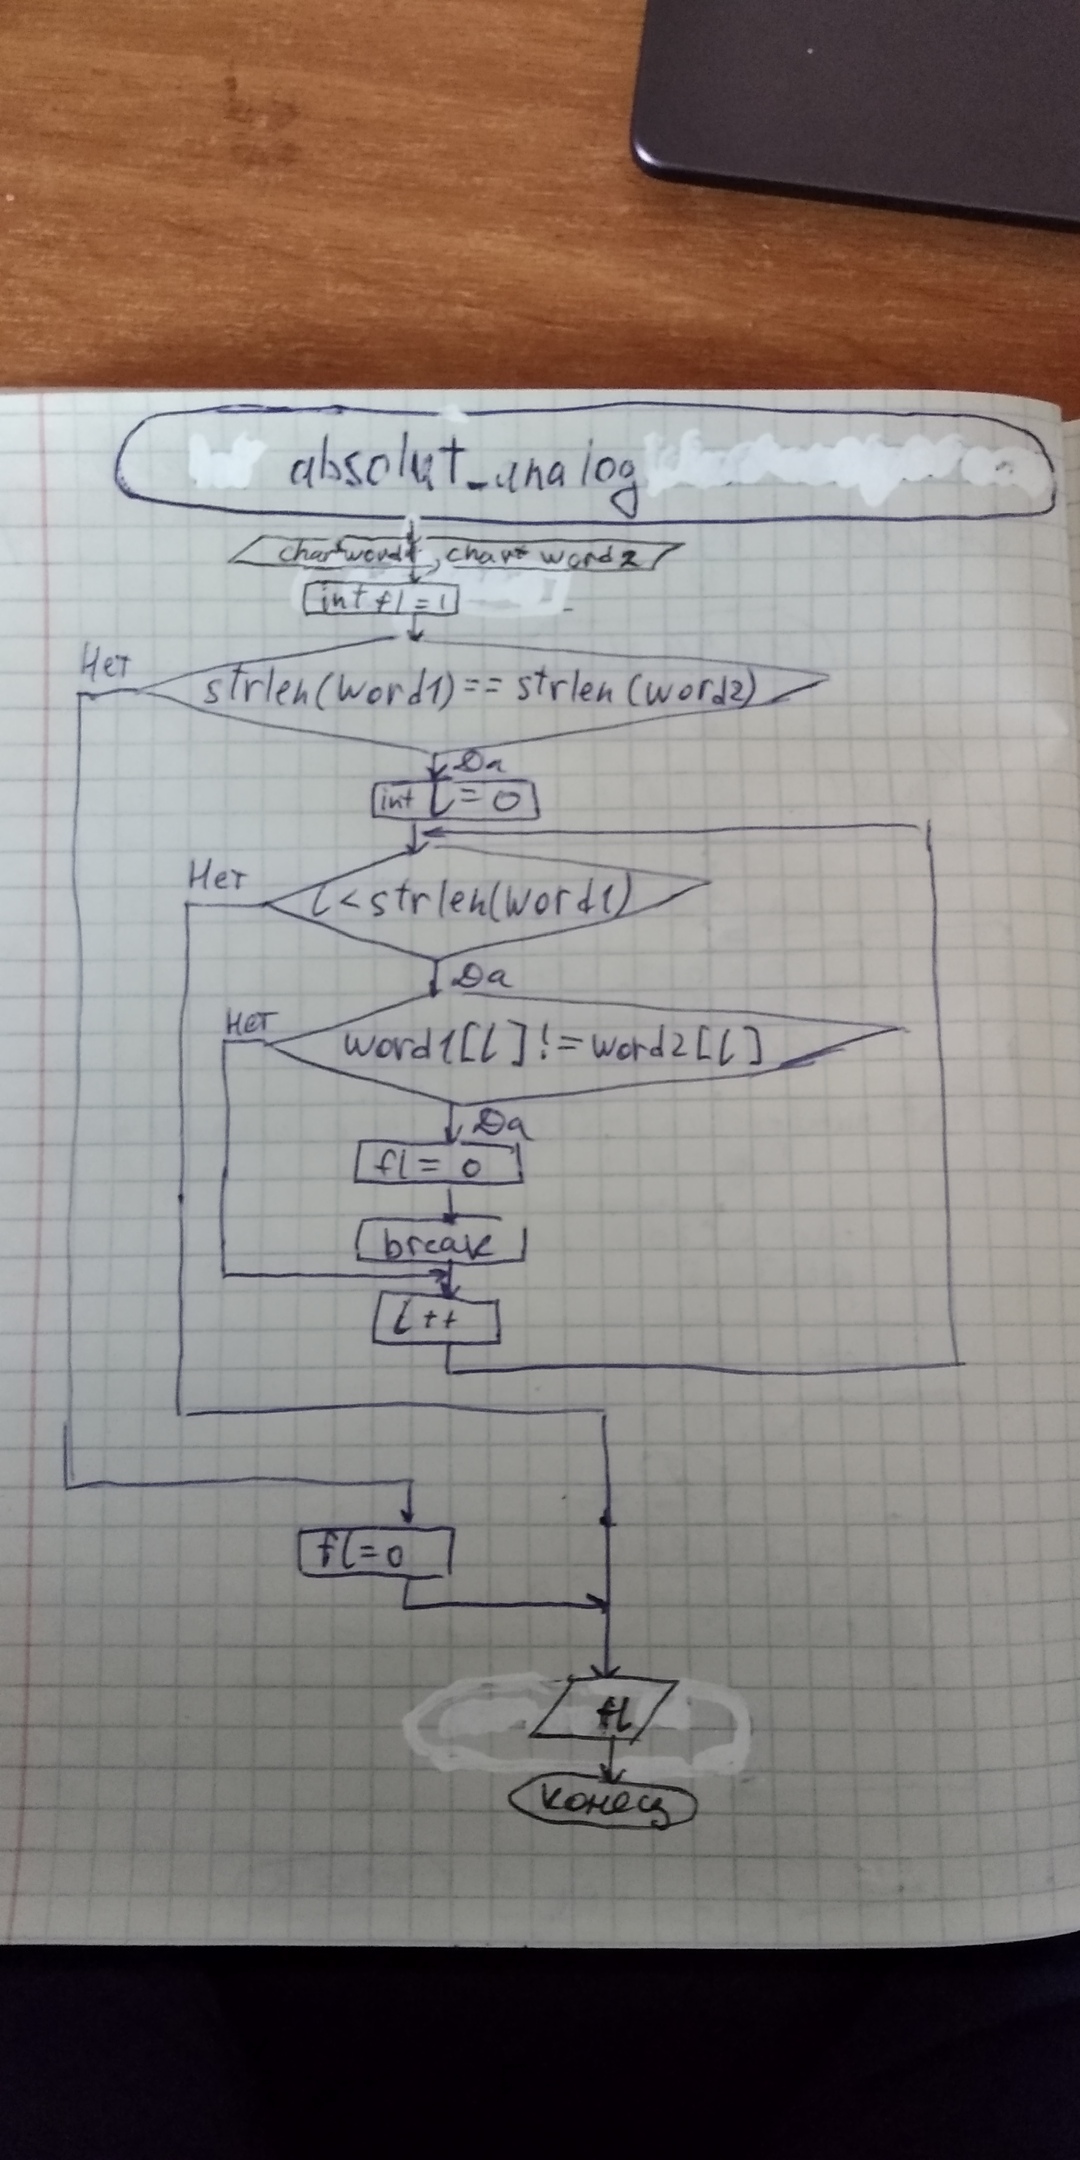 absolut_analog
char*word1, char* word2
int fl=1
Нет
strlen(word1)==strlen(word2)
Да
int i=0
Нет
i<strlen(word1)
Да
Нет
word1[i]!=word2[i]
Да
fl=0
break
i++
fl=0
fl
конец